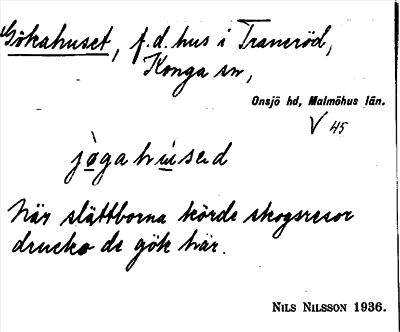 Gökahuset, f.d. hus i Traneröd,
Konga sn,
Onsjö hd, Malmöhus län.
V 45
jøgahusəd
När slättborna körde skogsresor
drucko de gök här.
NILS NILSSON 1936.